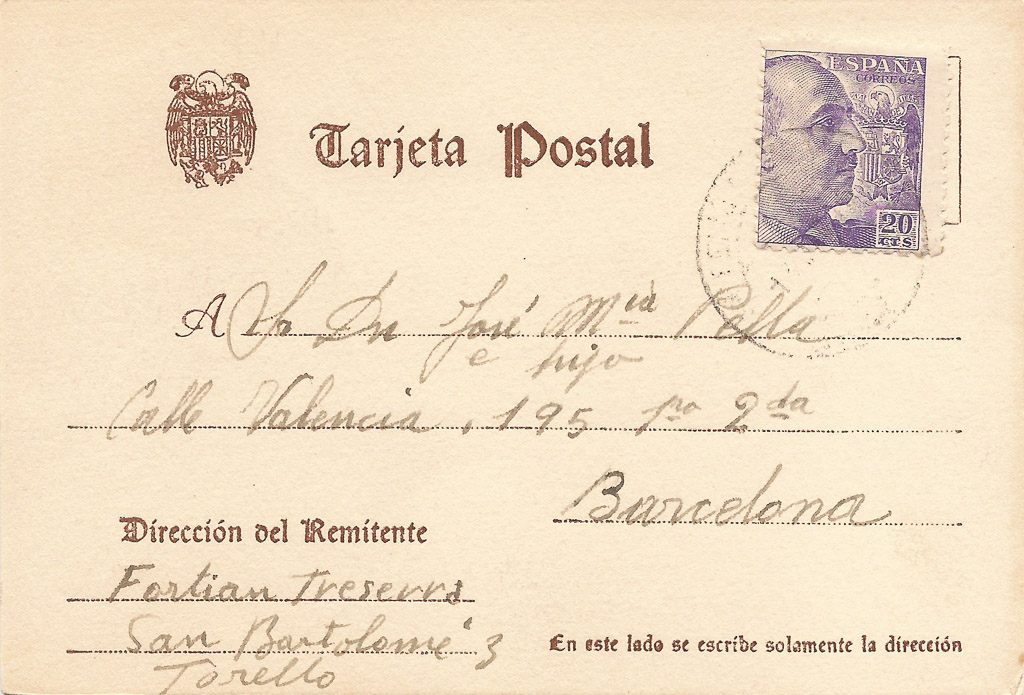 ESPAÑA
CORREOS
20
CTS
Tarjeta Postal
A Sr Dn José Mª
e hijo
Calle Valencia, 195 1ro 2da
Barcelona
Dirección del Remitente
Fortian Treserra
San Bartolomé 3
Torello
En este lado se escribe solamente la dirección